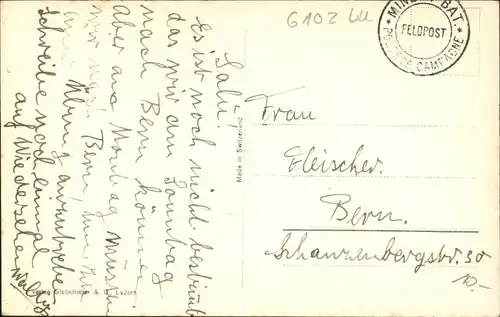 G102 LU
MIN. BAT.
FELDPOST
POSTE DE CAMPAGNE
Salü!
Es ist noch nicht bestimmt
das wir am Sonntag
nach Bern können
aber am Montag müssen
wir nach Bern
Übung
schreibe noch einmal
auf Wiedersehen
Made in Switzerland
Verlag Globetrotter A. G. Luzern
Frau
Fleischer.
Bern.
Schanzenbergstr. 30
10.-